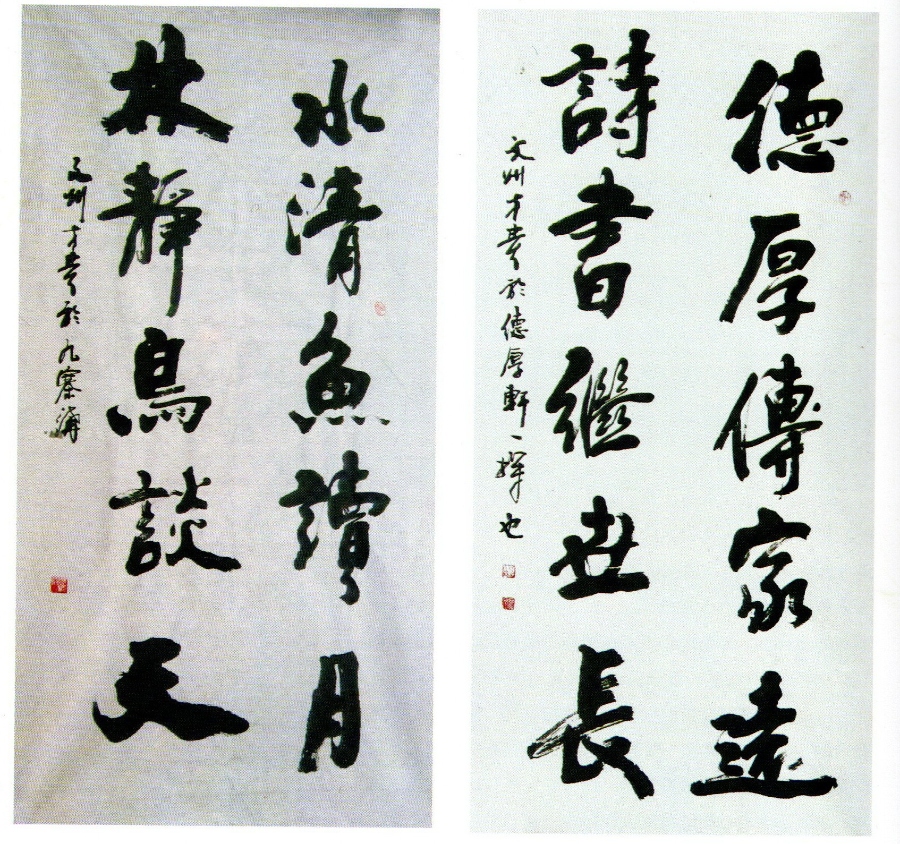 德厚傳家遠
詩書繼世長
文州才贵於德厚軒一揮也
水清魚讀月
林靜鳥談天
文州才贵於九寨溝